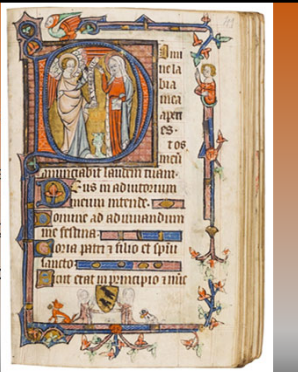 Domi
ne la
bia
mea
aperi
es·
t os
meu
annunciabit laudem tuam.
Deus in adiutorium
meum intende.
Domine ad adiuvandum
me festina.
Gloria patri ⁊ filio et spiri
sancto
Sicut erat in principio ⁊ nuc